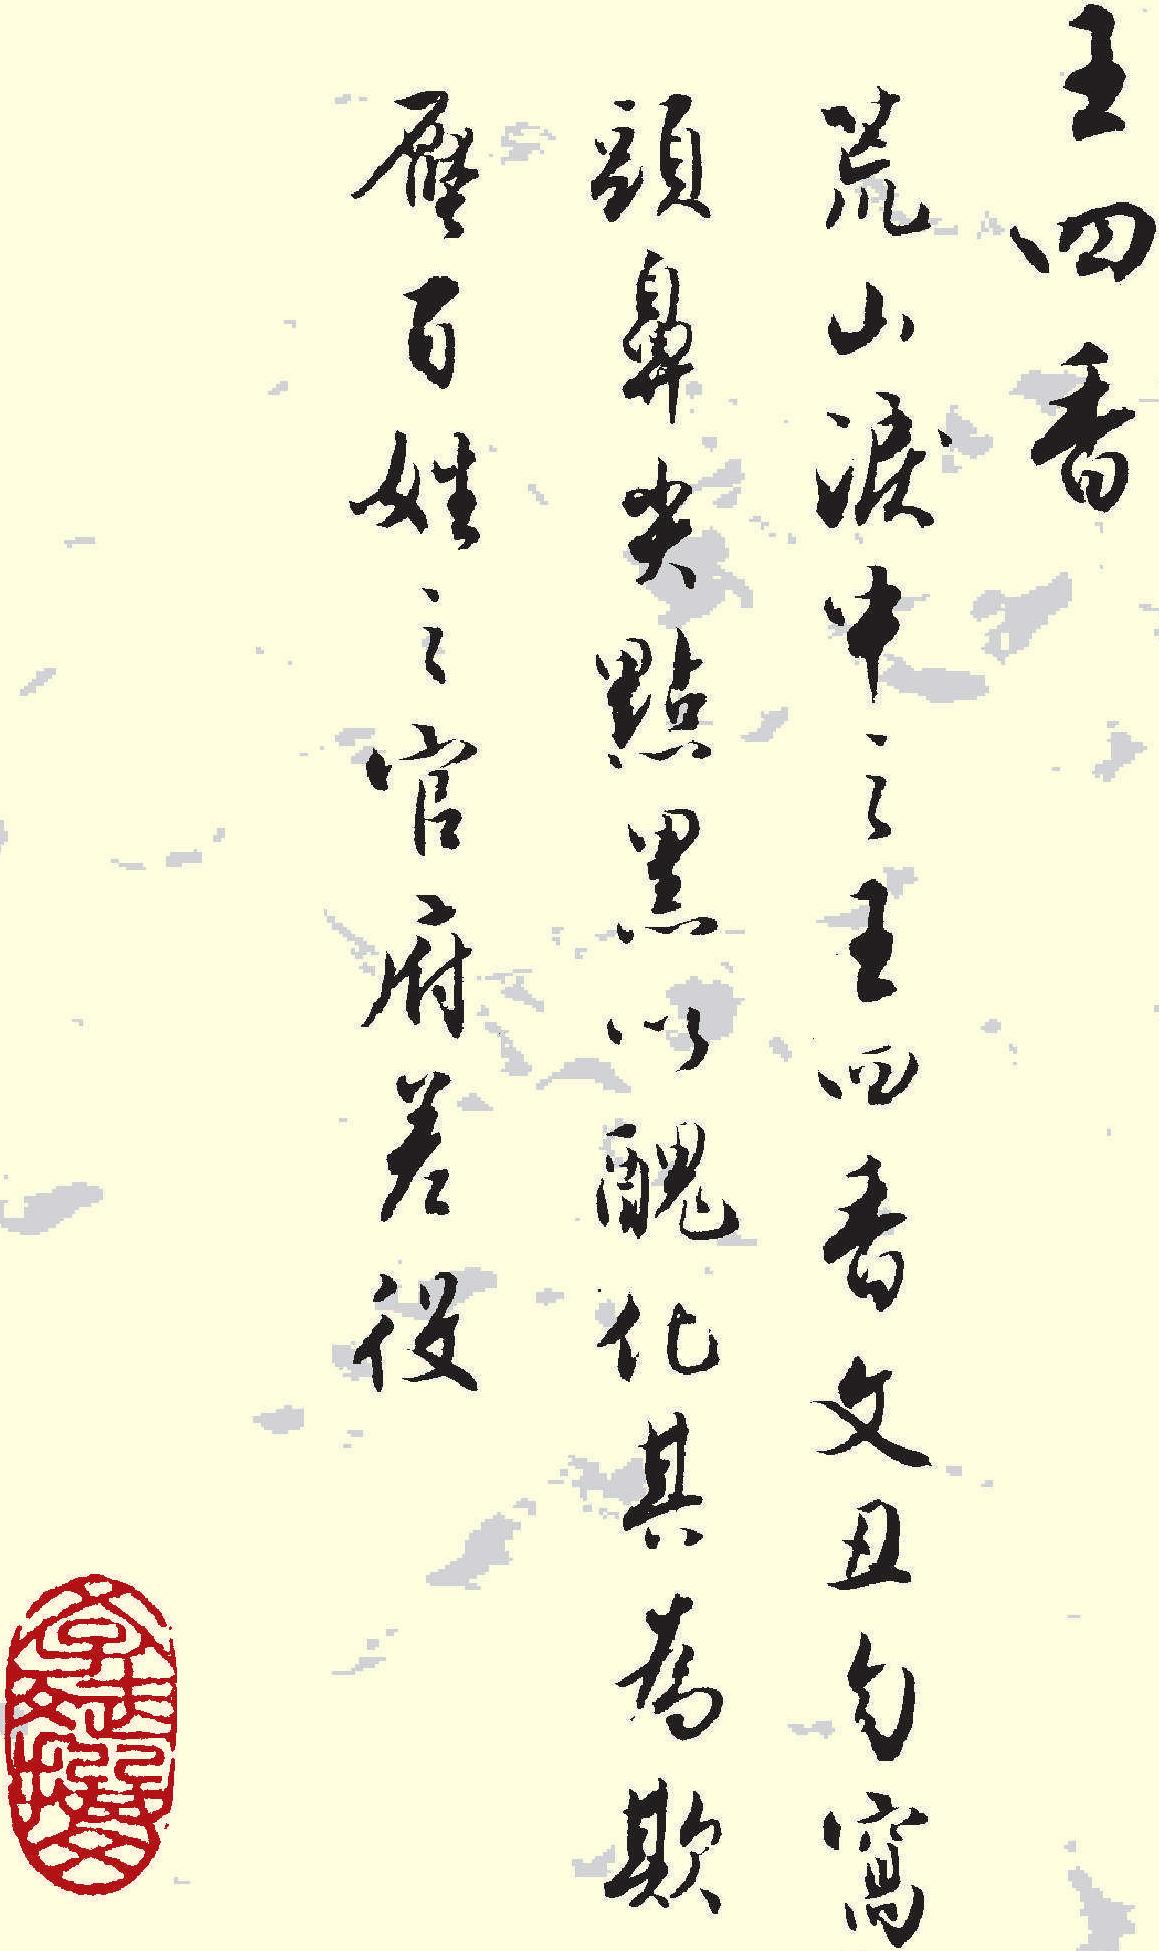 王四香
荒山淚中之王四香文丑勾窩
頭鼻尖點黑以醜化其為欺
壓百姓之官府差役